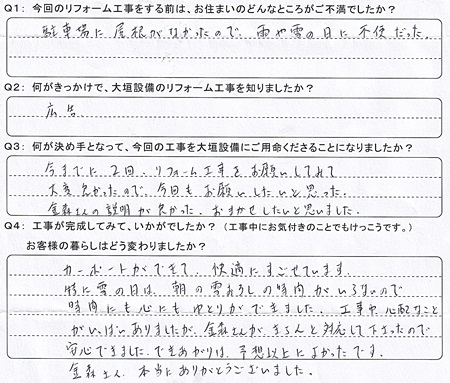 Q1：今回のリフォーム工事をする前は、お住まいのどんなところがご不満でしたか？
駐車場に屋根がなかったので、雨や雪の日に不便だった。
Q2：何がきっかけで、大垣設備のリフォーム工事を知りましたか？
広告
Q3：何が決め手となって、今回の工事を大垣設備にご用命くださることになりましたか？
今までに2回、リフォーム工事をお願いしてみて
大変良かったので、今回もお願いしたいと思った。
金森さんの説明が良かった。おまかせしたいと思いました。
Q4：工事が完成してみて、いかがでしたか？（工事中にお気付きのことでもけっこうです。）
お客様の暮らしはどう変わりましたか？
カーポートができて、快適にすごせています。
特に雪の日は、朝の雪おろしの時間がいらないので
時間にも心にもゆとりができました。工事中心配なこと
がいっぱいありましたが、金森さんが、きちんと対応して下さったので
安心できました。できあがりは、予想以上によかったです。
金森さん、本当にありがとうございました。